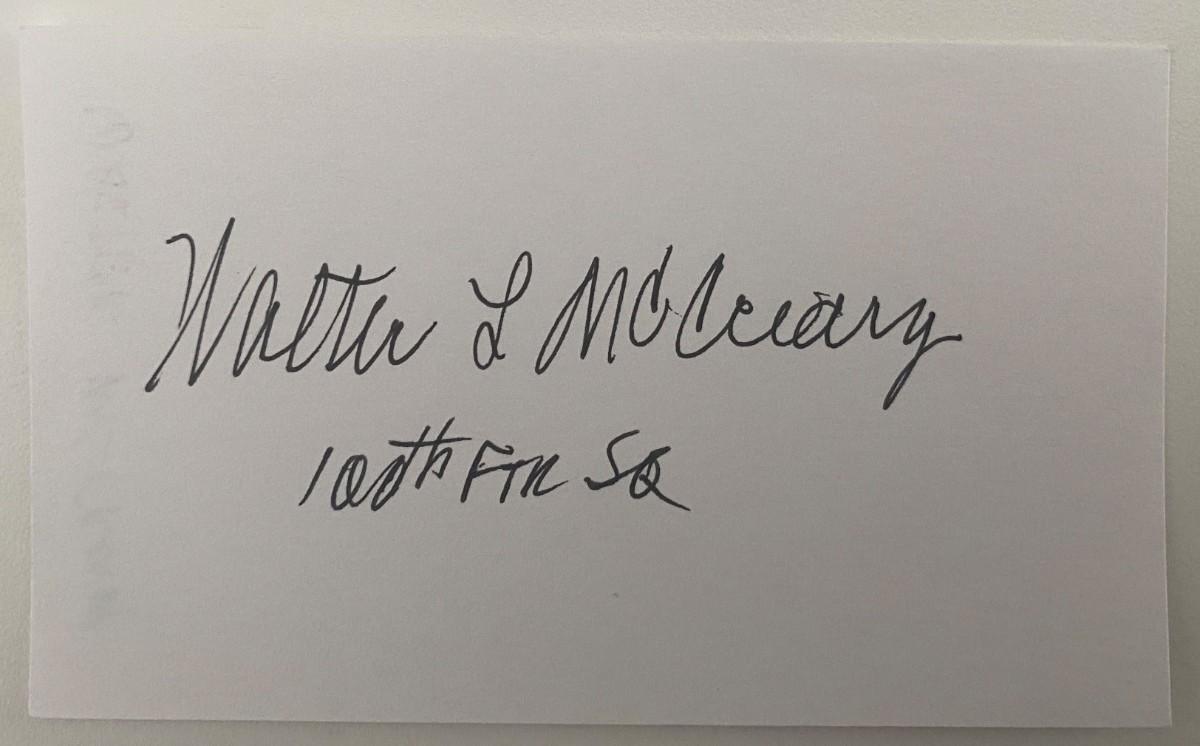 Walter L McCreary
100th FTR SQ